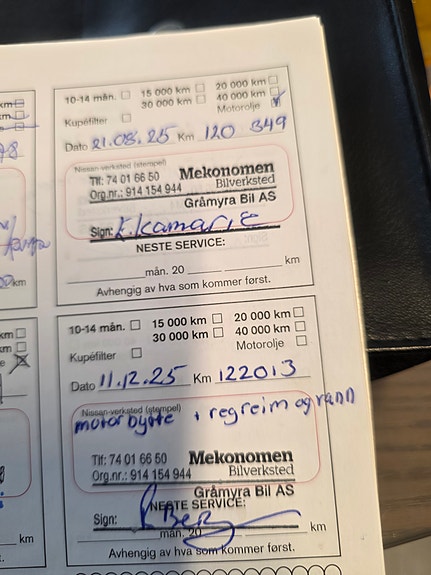 10-14 mån. 15 000 km 20 000 km
30 000 km 40 000 km
Kupéfilter Motorolje
Dato 21.08.25 Km 120 349
Nissan-verksted (stempel)
Tlf: 74 01 66 50 Mekonomen
Org.nr.: 914 154 944 Bilverksted
Gråmyra Bil AS
Sign:
NESTE SERVICE:
mån. 20 km
Avhengig av hva som kommer først.
10-14 mån. 15 000 km 20 000 km
30 000 km 40 000 km
Kupéfilter Motorolje
Dato 11.12.25 Km 122013
Nissan-verksted (stempel)
motorbytte + regreim og vann
Tlf: 74 01 66 50 Mekonomen
Org.nr.: 914 154 944 Bilverksted
Gråmyra Bil AS
NESTE SERVICE:
Sign:
mån. 20 km
Avhengig av hva som kommer først.